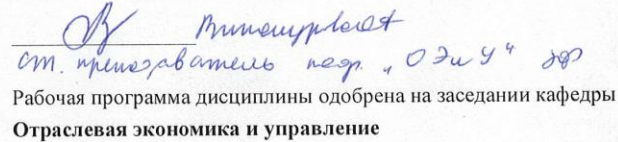 Винокурова А
ст. преподаватель каф. „ОЭиУ"
Рабочая программа дисциплины одобрена на заседании кафедры
Отраслевая экономика и управление